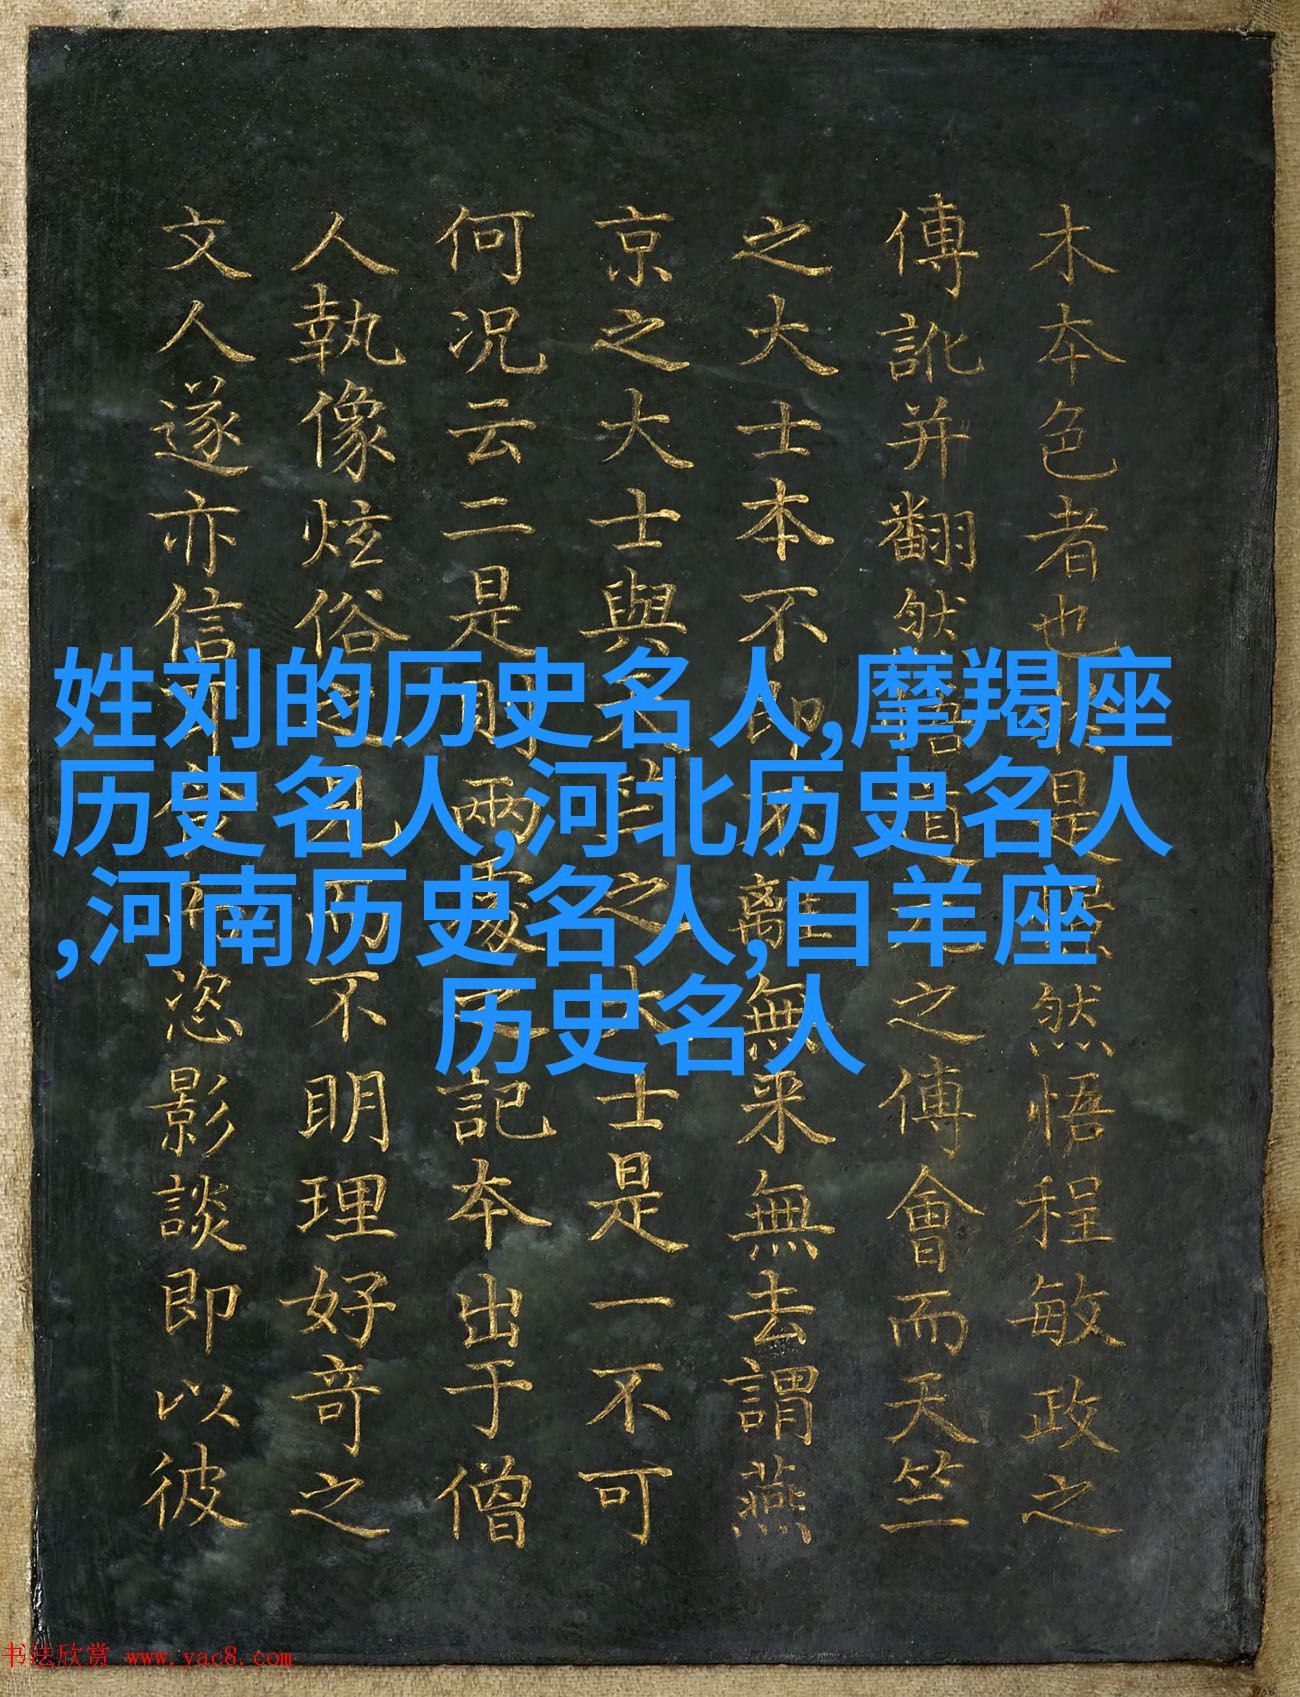 木夲色者也是然悟程敏政之
傳訛并翻然悟道之傅會而天竺
之大士本不即不離無来無去謂燕
京之大士與竺之大士是一不可
何况云二是則兩處之記夲出于僧
人執像炫俗之見而不明理好奇之
文人遂亦信而恣影談即以彼
姓刘的历史名人,摩羯座
历史名人,河北历史名人
,河南历史名人,白羊座
历史名人
书法欣赏 www.yac8.com